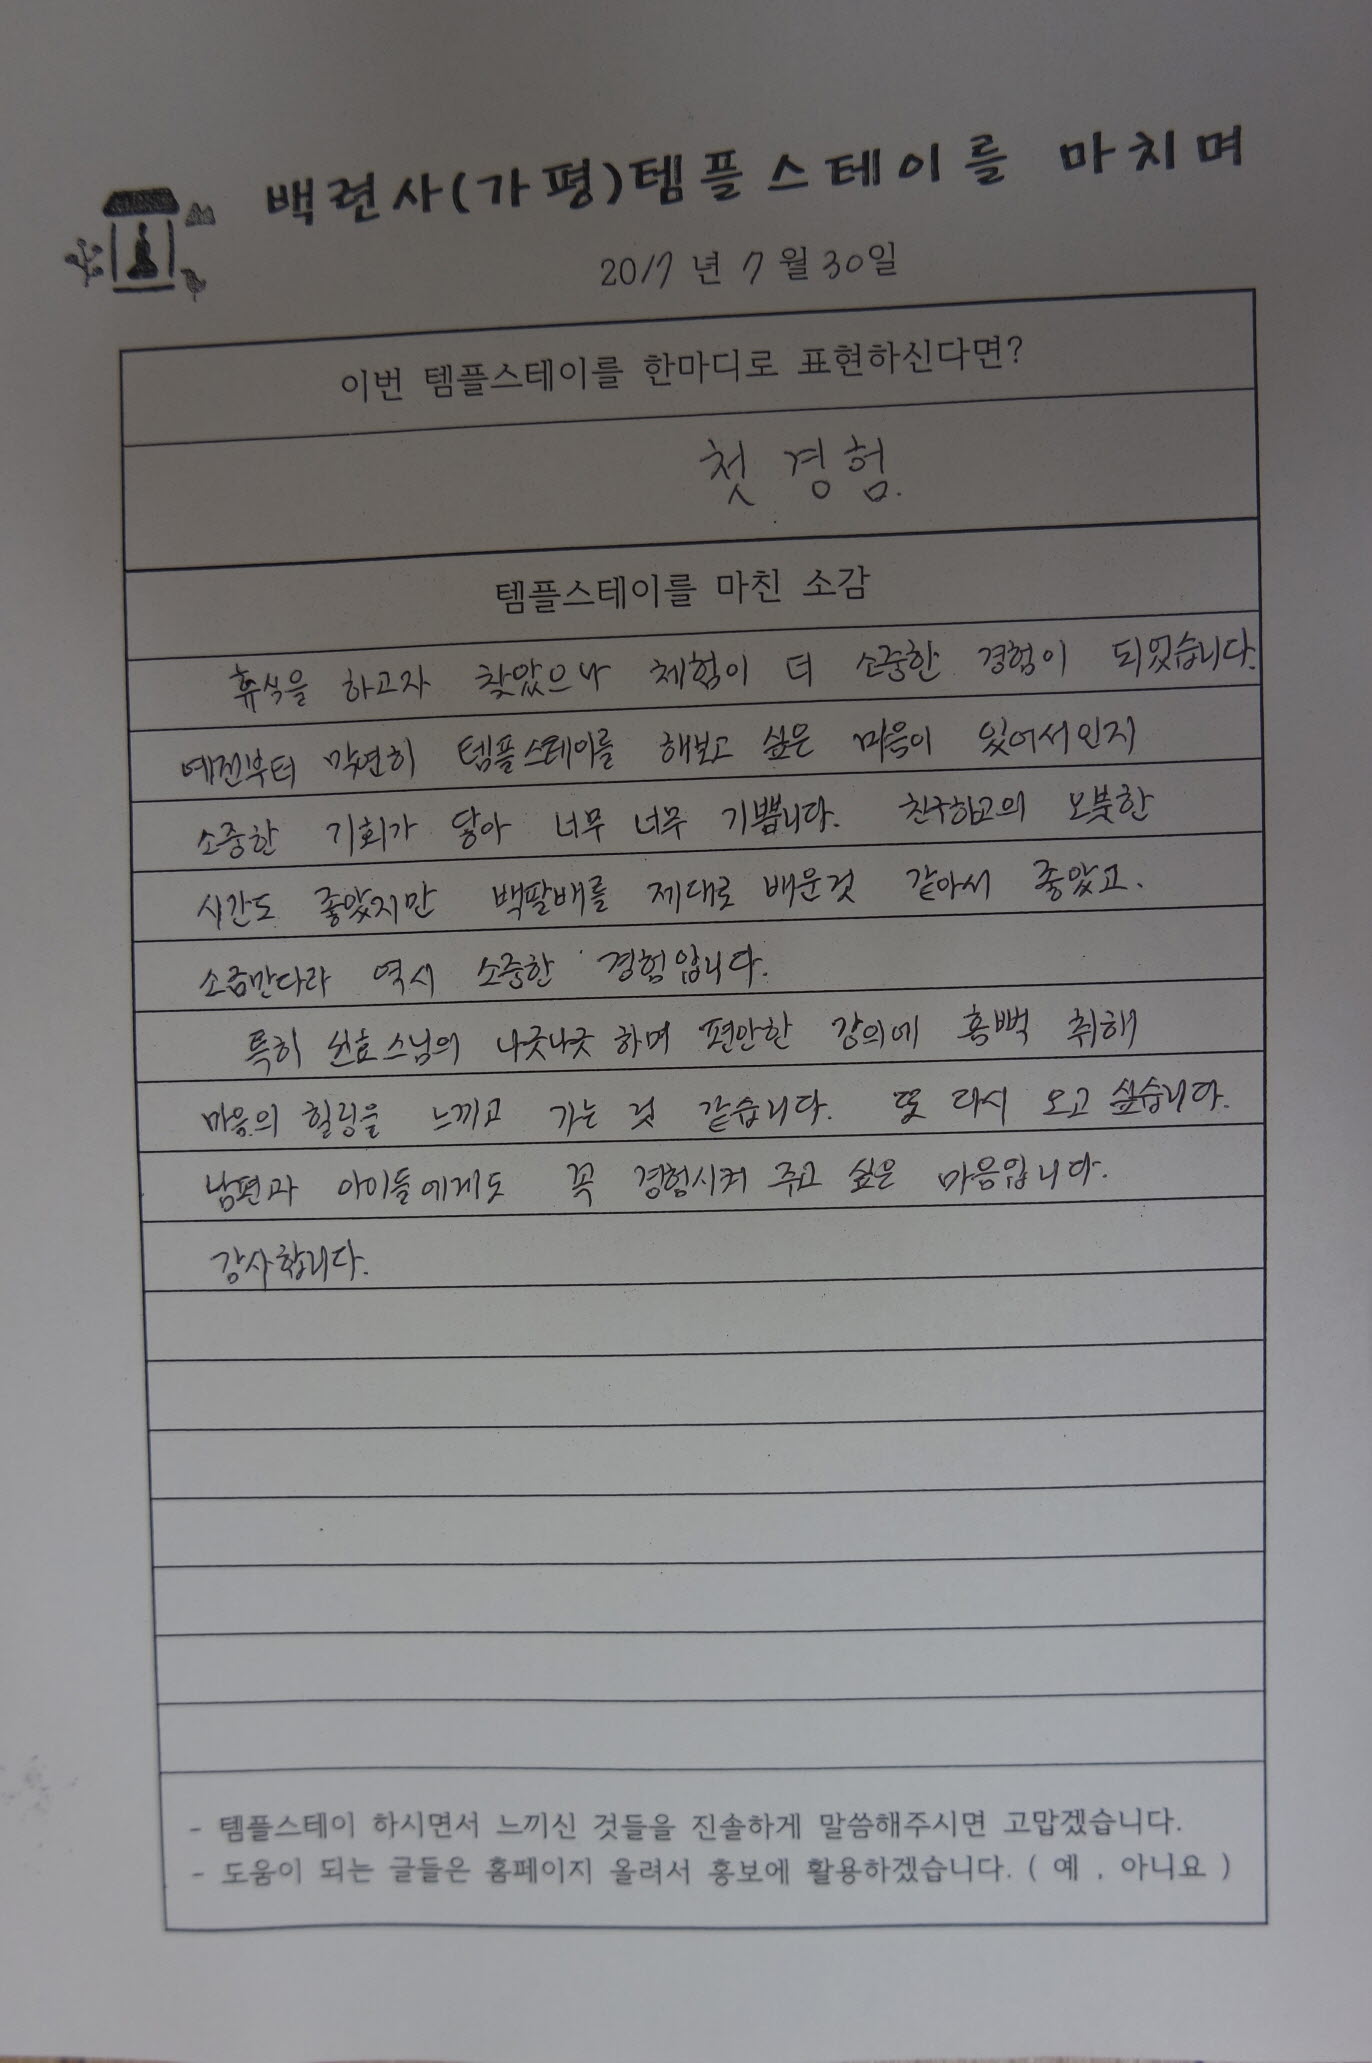 백련사(가평)템플스테이를 마치며
2017년 7월 30일
이번 템플스테이를 한마디로 표현하신다면?
첫 경험.
템플스테이를 마친 소감
휴식을 하고자 찾았으나 체험이 더 소중한 경험이 되었습니다.
예전부터 막연히 템플스테이를 해보고 싶은 마음이 있어서인지
소중한 기회가 닿아 너무 너무 기쁩니다. 친구하고의 오붓한
시간도 좋았지만 백팔배를 제대로 배운것 같아서 좋았고.
소금만다라 역시 소중한 경험입니다.
특히 선효스님의 나긋나긋 하며 편안한 강의에 흠뻑 취해
마음의 힐링을 느끼고 가는 것 같습니다. 또 다시 오고 싶습니다.
남편과 아이들에게도 꼭 경험시켜 주고 싶은 마음입니다.
감사합니다.
- 템플스테이 하시면서 느끼신 것들을 진솔하게 말씀해주시면 고맙겠습니다.
- 도움이 되는 글들은 홈페이지 올려서 홍보에 활용하겠습니다. ( 예 , 아니요 )